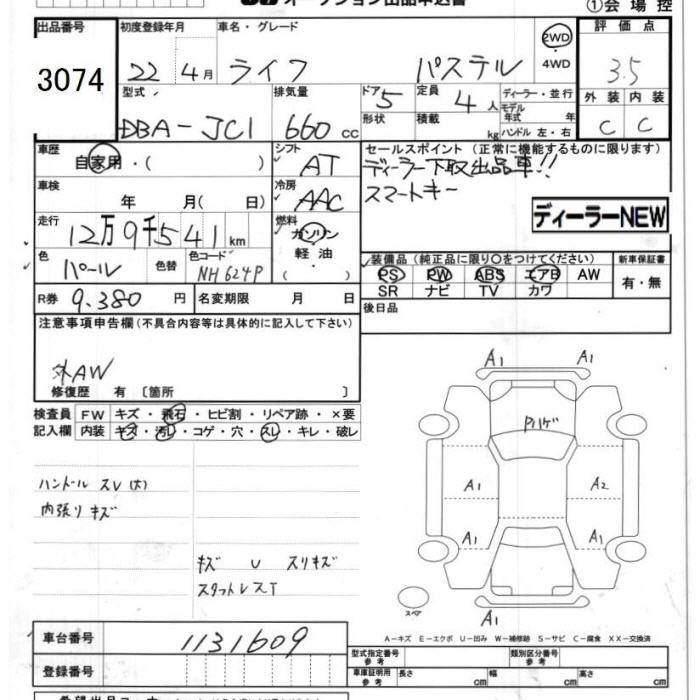 オークション出品申込書
①会場控
出品番号 初度登録年月 車名・グレード 評価点
3074 22 4月 ライフ パステル 2WD 3.5
・4WD
型式 排気量 ドア 5 定員 4人 ディーラー・並行 外装 内装
DBA-JC1 660cc 形状 積載 kg モデル年式 年 C C
ハンドル 左・右
車歴 自家用・( ) シフト AT セールスポイント(正常に機能するものに限ります)
ディーラー下取出品車!!
車検 年 月( 日) 冷房 AAC スマートキー
ディーラーNEW
走行 12万9千541km 燃料 ガソリン
軽油
・( )
色 パール 色替 色コード NH624P 装備品(純正品に限り○をつけてください) 新車保証書
PS PW ABS エアB AW 有・無
R券 9.380円 名変期限 月 日 SR ナビ TV カワ
注意事項申告欄(不具合内容等は具体的に記入して下さい) 後日品
外AW
修復歴 有 〔箇所 〕
検査員 FW キズ・飛石・ヒビ割・リペア跡・×要
記入欄 内装 キズ・汚レ・コゲ・穴・スレ・キレ・破レ
ハンドル スレ(大)
内張り キズ
キズ U スリキズ
スタットレスT
A1 A1
Pハゲ
A1 A2
A1 A1
スペア
A1
A-キズ E-エクボ U-凹み W-補修跡 S-サビ C-腐食 XX-交換済
車台番号 1131609
型式指定番号 参考 類別区分番号 参考
登録番号 車庫証明用 参考 長さ cm 幅 cm 高さ cm
希望出品コーナー